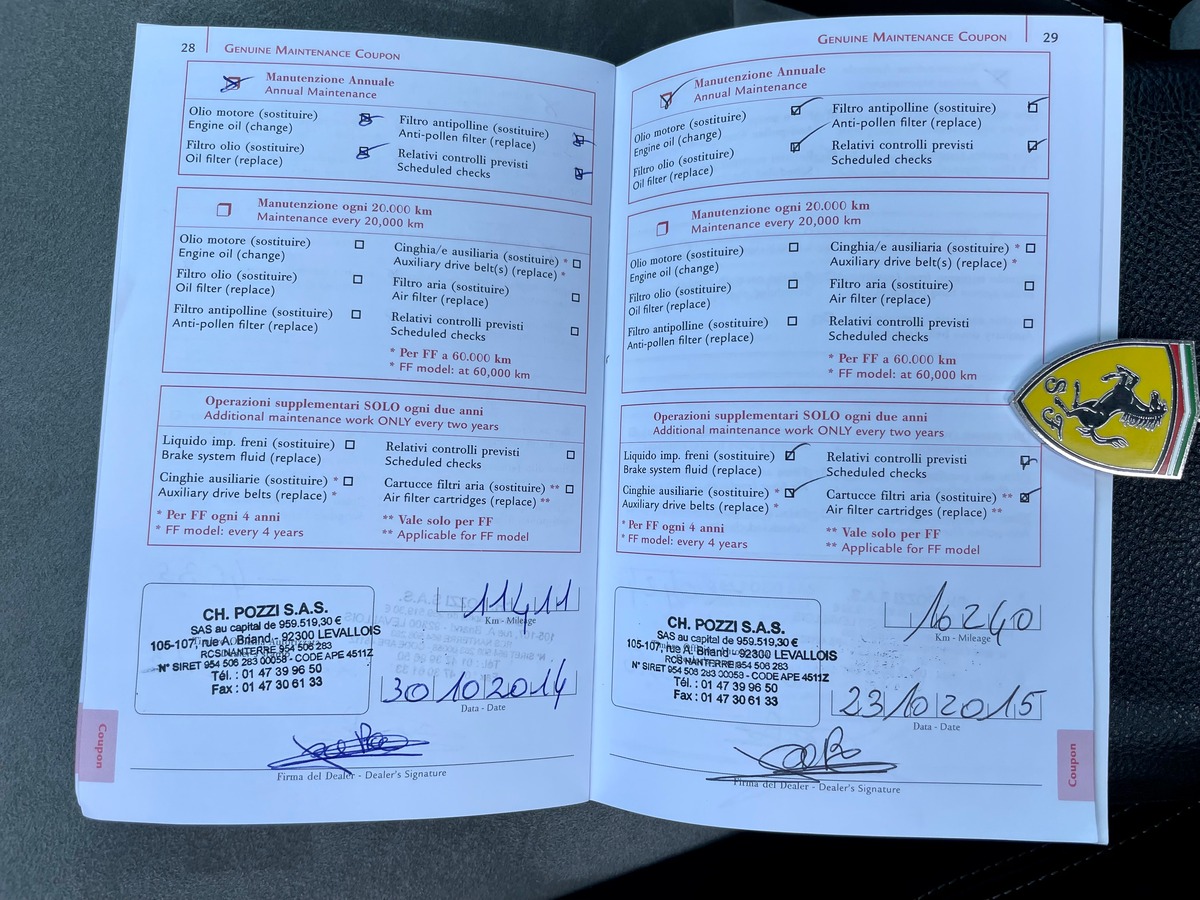 28
GENUINE MAINTENANCE COUPON
Manutenzione Annuale
Annual Maintenance
Olio motore (sostituire)
Engine oil (change)
Filtro olio (sostituire)
Oil filter (replace)
Filtro antipolline (sostituire)
Anti-pollen filter (replace)
Relativi controlli previsti
Scheduled checks
Manutenzione ogni 20.000 km
Maintenance every 20,000 km
Olio motore (sostituire)
Engine oil (change)
Filtro olio (sostituire)
Oil filter (replace)
Filtro antipolline (sostituire)
Anti-pollen filter (replace)
Cinghia/e ausiliaria (sostituire) *
Auxiliary drive belt(s) (replace) *
Filtro aria (sostituire)
Air filter (replace)
Relativi controlli previsti
Scheduled checks
* Per FF a 60.000 km
* FF model: at 60,000 km
Operazioni supplementari SOLO ogni due anni
Additional maintenance work ONLY every two years
Liquido imp. freni (sostituire)
Brake system fluid (replace)
Cinghie ausiliarie (sostituire) *
Auxiliary drive belts (replace) *
* Per FF ogni 4 anni
* FF model: every 4 years
Relativi controlli previsti
Scheduled checks
Cartucce filtri aria (sostituire) **
Air filter cartridges (replace) **
** Vale solo per FF
** Applicable for FF model
CH. POZZI S.A.S.
SAS au capital de 959.519,30 €
105-107, rue A. Briand - 92300 LEVALLOIS
RCS NANTERRE 954 506 283
N° SIRET 954 506 283 00058 - CODE APE 4511Z
Tél. : 01 47 39 96 50
Fax : 01 47 30 61 33
11411
Km - Mileage
30102014
Data - Date
Firma del Dealer - Dealer's Signature
Coupon
GENUINE MAINTENANCE COUPON
29
Manutenzione Annuale
Annual Maintenance
Olio motore (sostituire)
Engine oil (change)
Filtro olio (sostituire)
Oil filter (replace)
Filtro antipolline (sostituire)
Anti-pollen filter (replace)
Relativi controlli previsti
Scheduled checks
Manutenzione ogni 20.000 km
Maintenance every 20,000 km
Olio motore (sostituire)
Engine oil (change)
Filtro olio (sostituire)
Oil filter (replace)
Filtro antipolline (sostituire)
Anti-pollen filter (replace)
Cinghia/e ausiliaria (sostituire) *
Auxiliary drive belt(s) (replace) *
Filtro aria (sostituire)
Air filter (replace)
Relativi controlli previsti
Scheduled checks
* Per FF a 60.000 km
* FF model: at 60,000 km
Operazioni supplementari SOLO ogni due anni
Additional maintenance work ONLY every two years
Liquido imp. freni (sostituire)
Brake system fluid (replace)
Cinghie ausiliarie (sostituire) *
Auxiliary drive belts (replace) *
* Per FF ogni 4 anni
* FF model: every 4 years
Relativi controlli previsti
Scheduled checks
Cartucce filtri aria (sostituire) **
Air filter cartridges (replace) **
** Vale solo per FF
** Applicable for FF model
CH. POZZI S.A.S.
SAS au capital de 959.519,30 €
105-107, rue A. Briand - 92300 LEVALLOIS
RCS NANTERRE 954 506 283
N° SIRET 954 506 283 00058 - CODE APE 4511Z
Tél. : 01 47 39 96 50
Fax : 01 47 30 61 33
16240
Km - Mileage
23102015
Data - Date
Firma del Dealer - Dealer's Signature
Coupon
S F